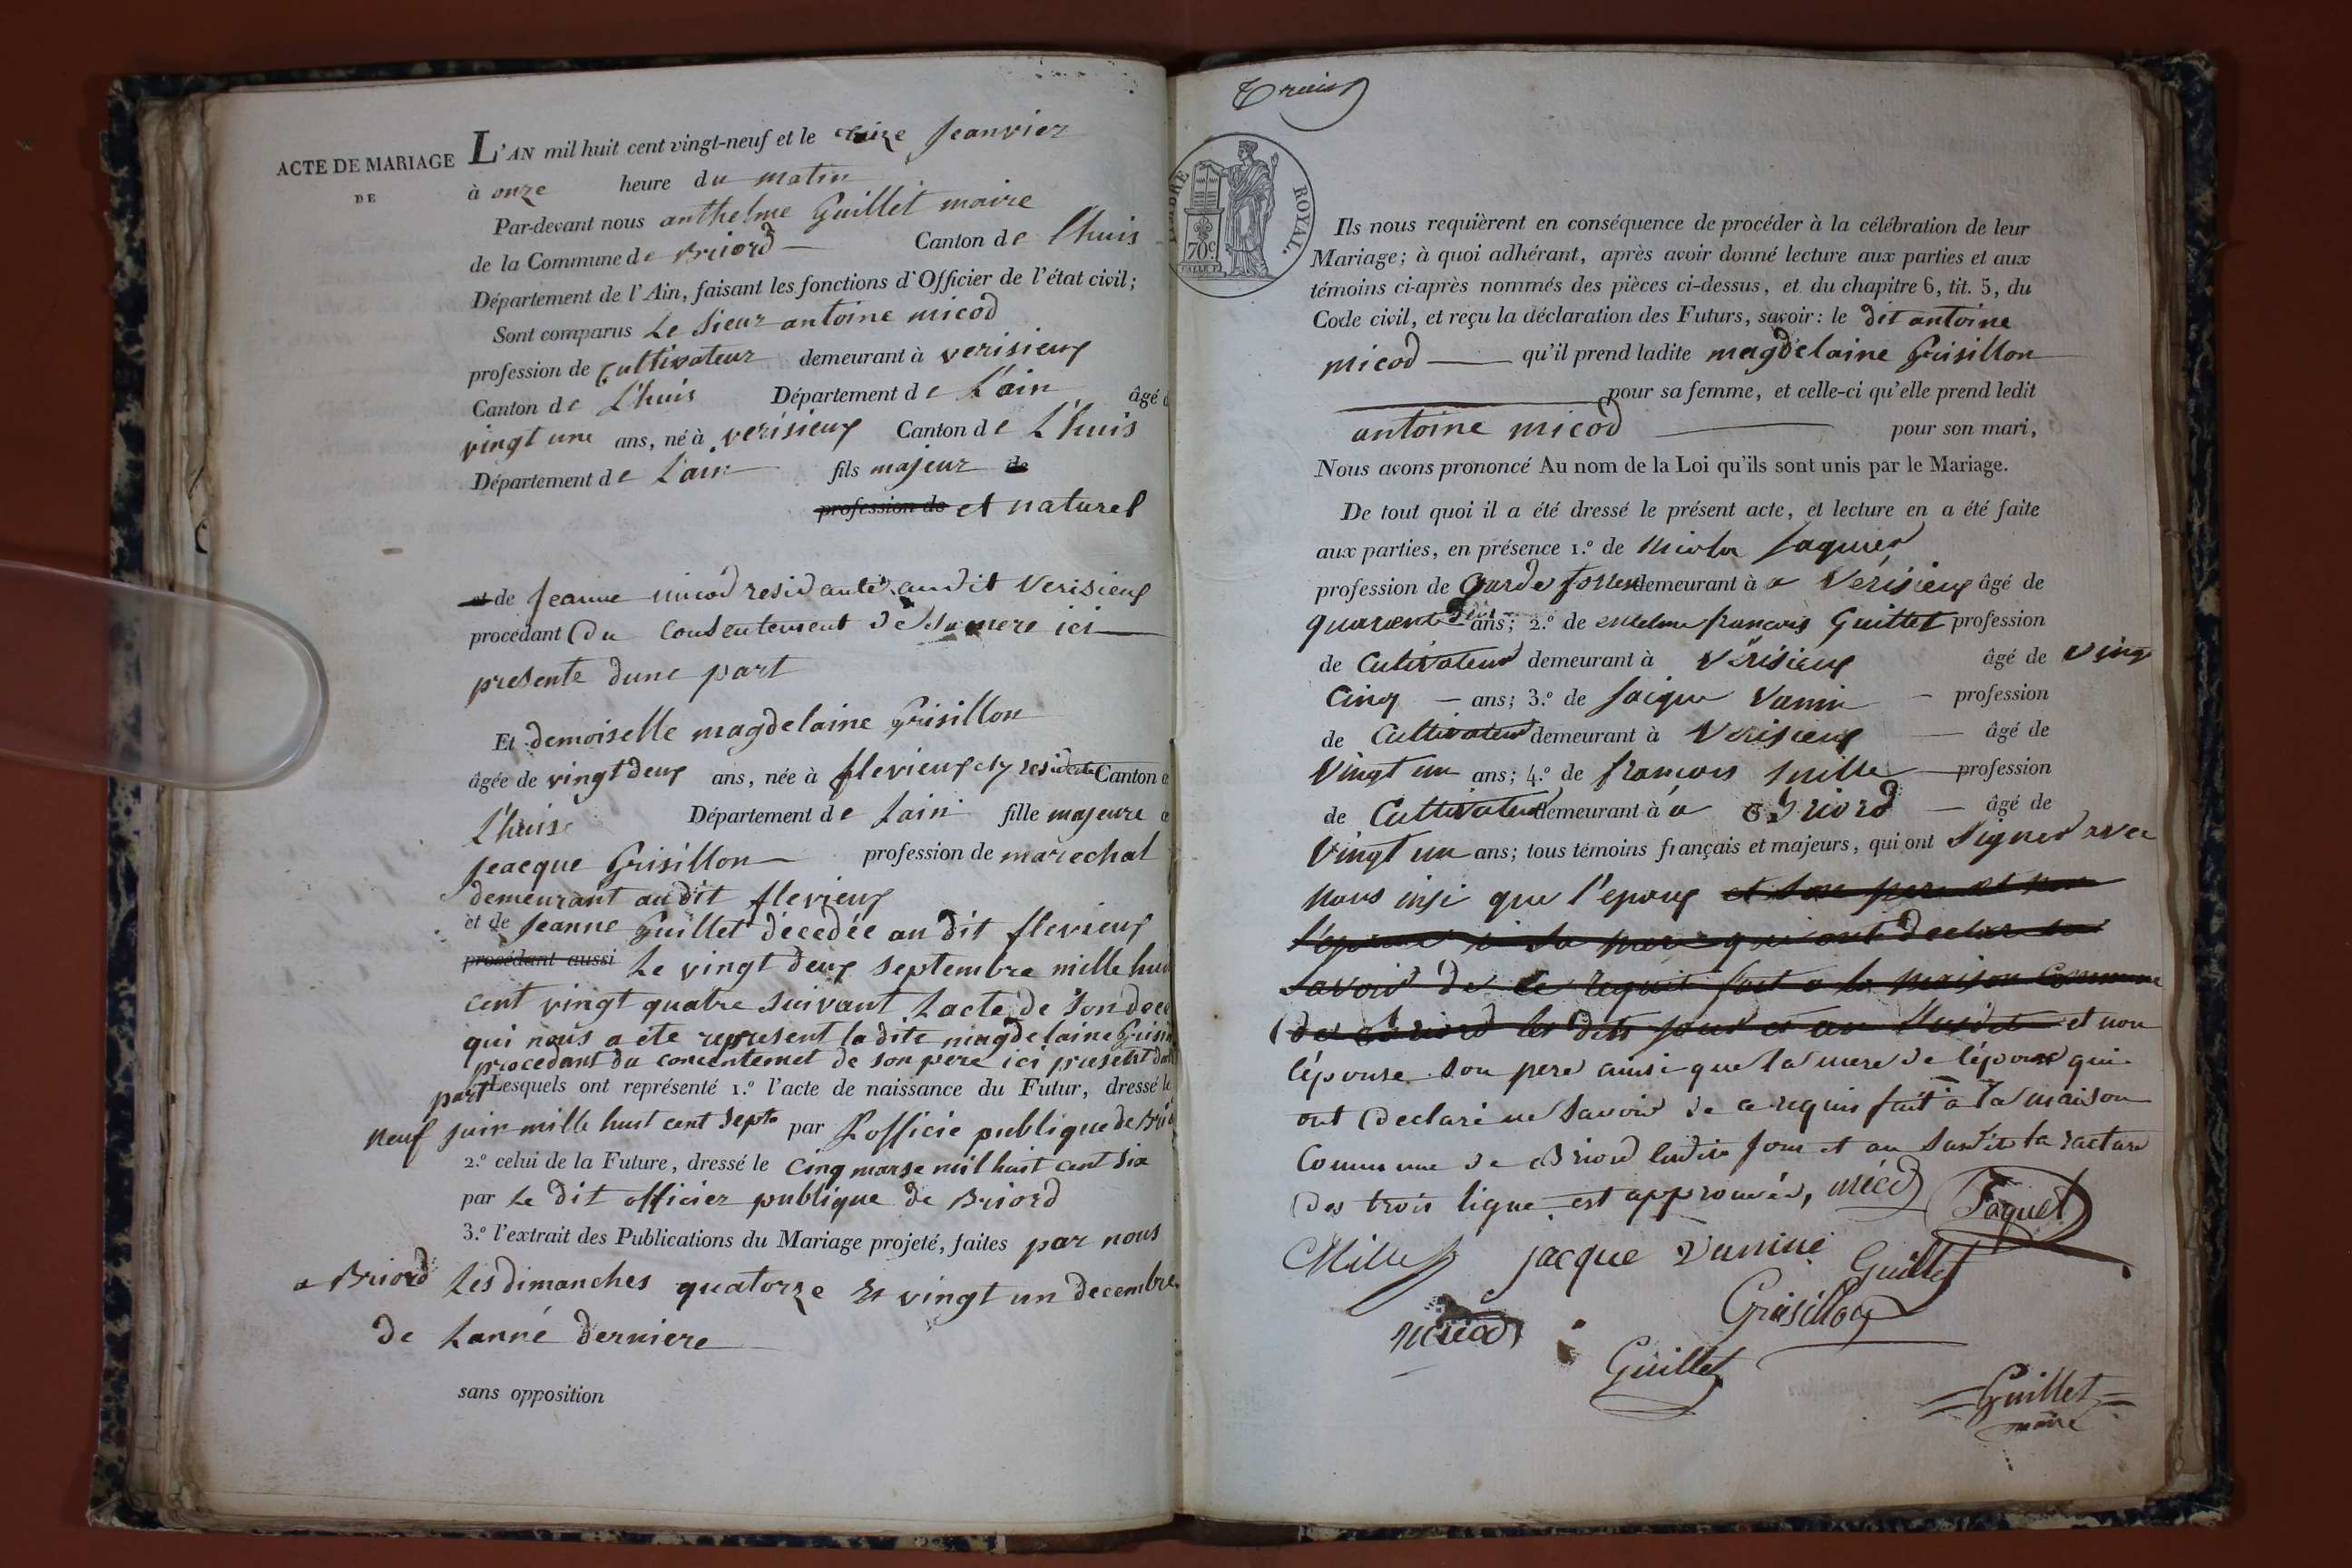 ACTE DE MARIAGE
DE
L'AN mil huit cent vingt-neuf et le treize Jeanvier
à onze heure du matin
Par-devant nous anthelme Guillet maire
de la Commune de Briord Canton de Lhuis
Département de l'Ain, faisant les fonctions d'Officier de l'état civil;
Sont comparus Le Sieur antoine micod
profession de Cultivateur demeurant à verisieux
Canton de L'huis Département de L'ain âgé d
vingt une ans, né à verisieux Canton de L'huis
Département de L'ain fils majeur de
profession de et naturel
et de Jeanne micod residante audit Verisieux
procédant du Consentement de Sa mere ici
presente dune part
Et demoiselle magdelaine Grisillon
âgée de vingt deux ans, née à flevieux et y residente Canton de
L'huis Département de Lain fille majeure
Jeacque Grisillon profession de marechal
demeurant au dit flevieux
et de Jeanne Guillet décedée au dit flevieux
procédant aussi Le vingt deux septembre mille hui
cent vingt quatre suivant Lacte de Son dece
qui nous a ete represent la dite magdelaine Grisill
procedant du concentemet de son pere ici present d
part Lesquels ont représenté 1.º l'acte de naissance du Futur, dressé le
neuf juin mille huit cent Sept par L'officie publique de Brio
2.º celui de la Future, dressé le Cinq marse mil huit cent six
par Le dit officier publique de Briord
3.º l'extrait des Publications du Mariage projeté, faites par nous
a Briord Les dimanches quatorze Et vingt un decembre
de Lanné derniere
sans opposition
TIMBRE ROYAL.
70c.
Ils nous requièrent en conséquence de procéder à la célébration de leur
Mariage; à quoi adhérant, après avoir donné lecture aux parties et aux
témoins ci-après nommés des pièces ci-dessus, et du chapitre 6, tit. 5, du
Code civil, et reçu la déclaration des Futurs, savoir: le dit antoine
micod qu'il prend ladite magdelaine Grisillon
pour sa femme, et celle-ci qu'elle prend ledit
antoine micod pour son mari,
Nous avons prononcé Au nom de la Loi qu'ils sont unis par le Mariage.
De tout quoi il a été dressé le présent acte, et lecture en a été faite
aux parties, en présence 1.º de Nicolas
profession de Garde demeurant à a Vérisieux âgé de
quarente deux ans; 2.º de françois Guillet profession
de Cultivateur demeurant à Vérisieux âgé de Vingt
Cinq ans; 3.º de Jacque Vunin profession
de Cultivateur demeurant à Verisieux âgé de
Vingt un ans; 4.º de françois Mille profession
de Cultivateur demeurant à a Briord âgé de
Vingt un ans; tous témoins français et majeurs, qui ont Signer avec
nous insi que l'epoux et Son pere et non
l'epouse ni Sa mere qui ont declare
Savoir de ce requit fait a la maison Commune
de Briord les dits jour et an Susdits et non
l'épouse Son pere ainsi que la mere de l'époux qui
ont declaré ne Savoir de ce requis fait à la maison
Commune de Briord ledit Jour et an Susdits la rature
des trois ligne est approuvée, micod Faquet
Mille Jacque Vunine Guillet
Grisillon
micod
Guillet
Guillet
maire